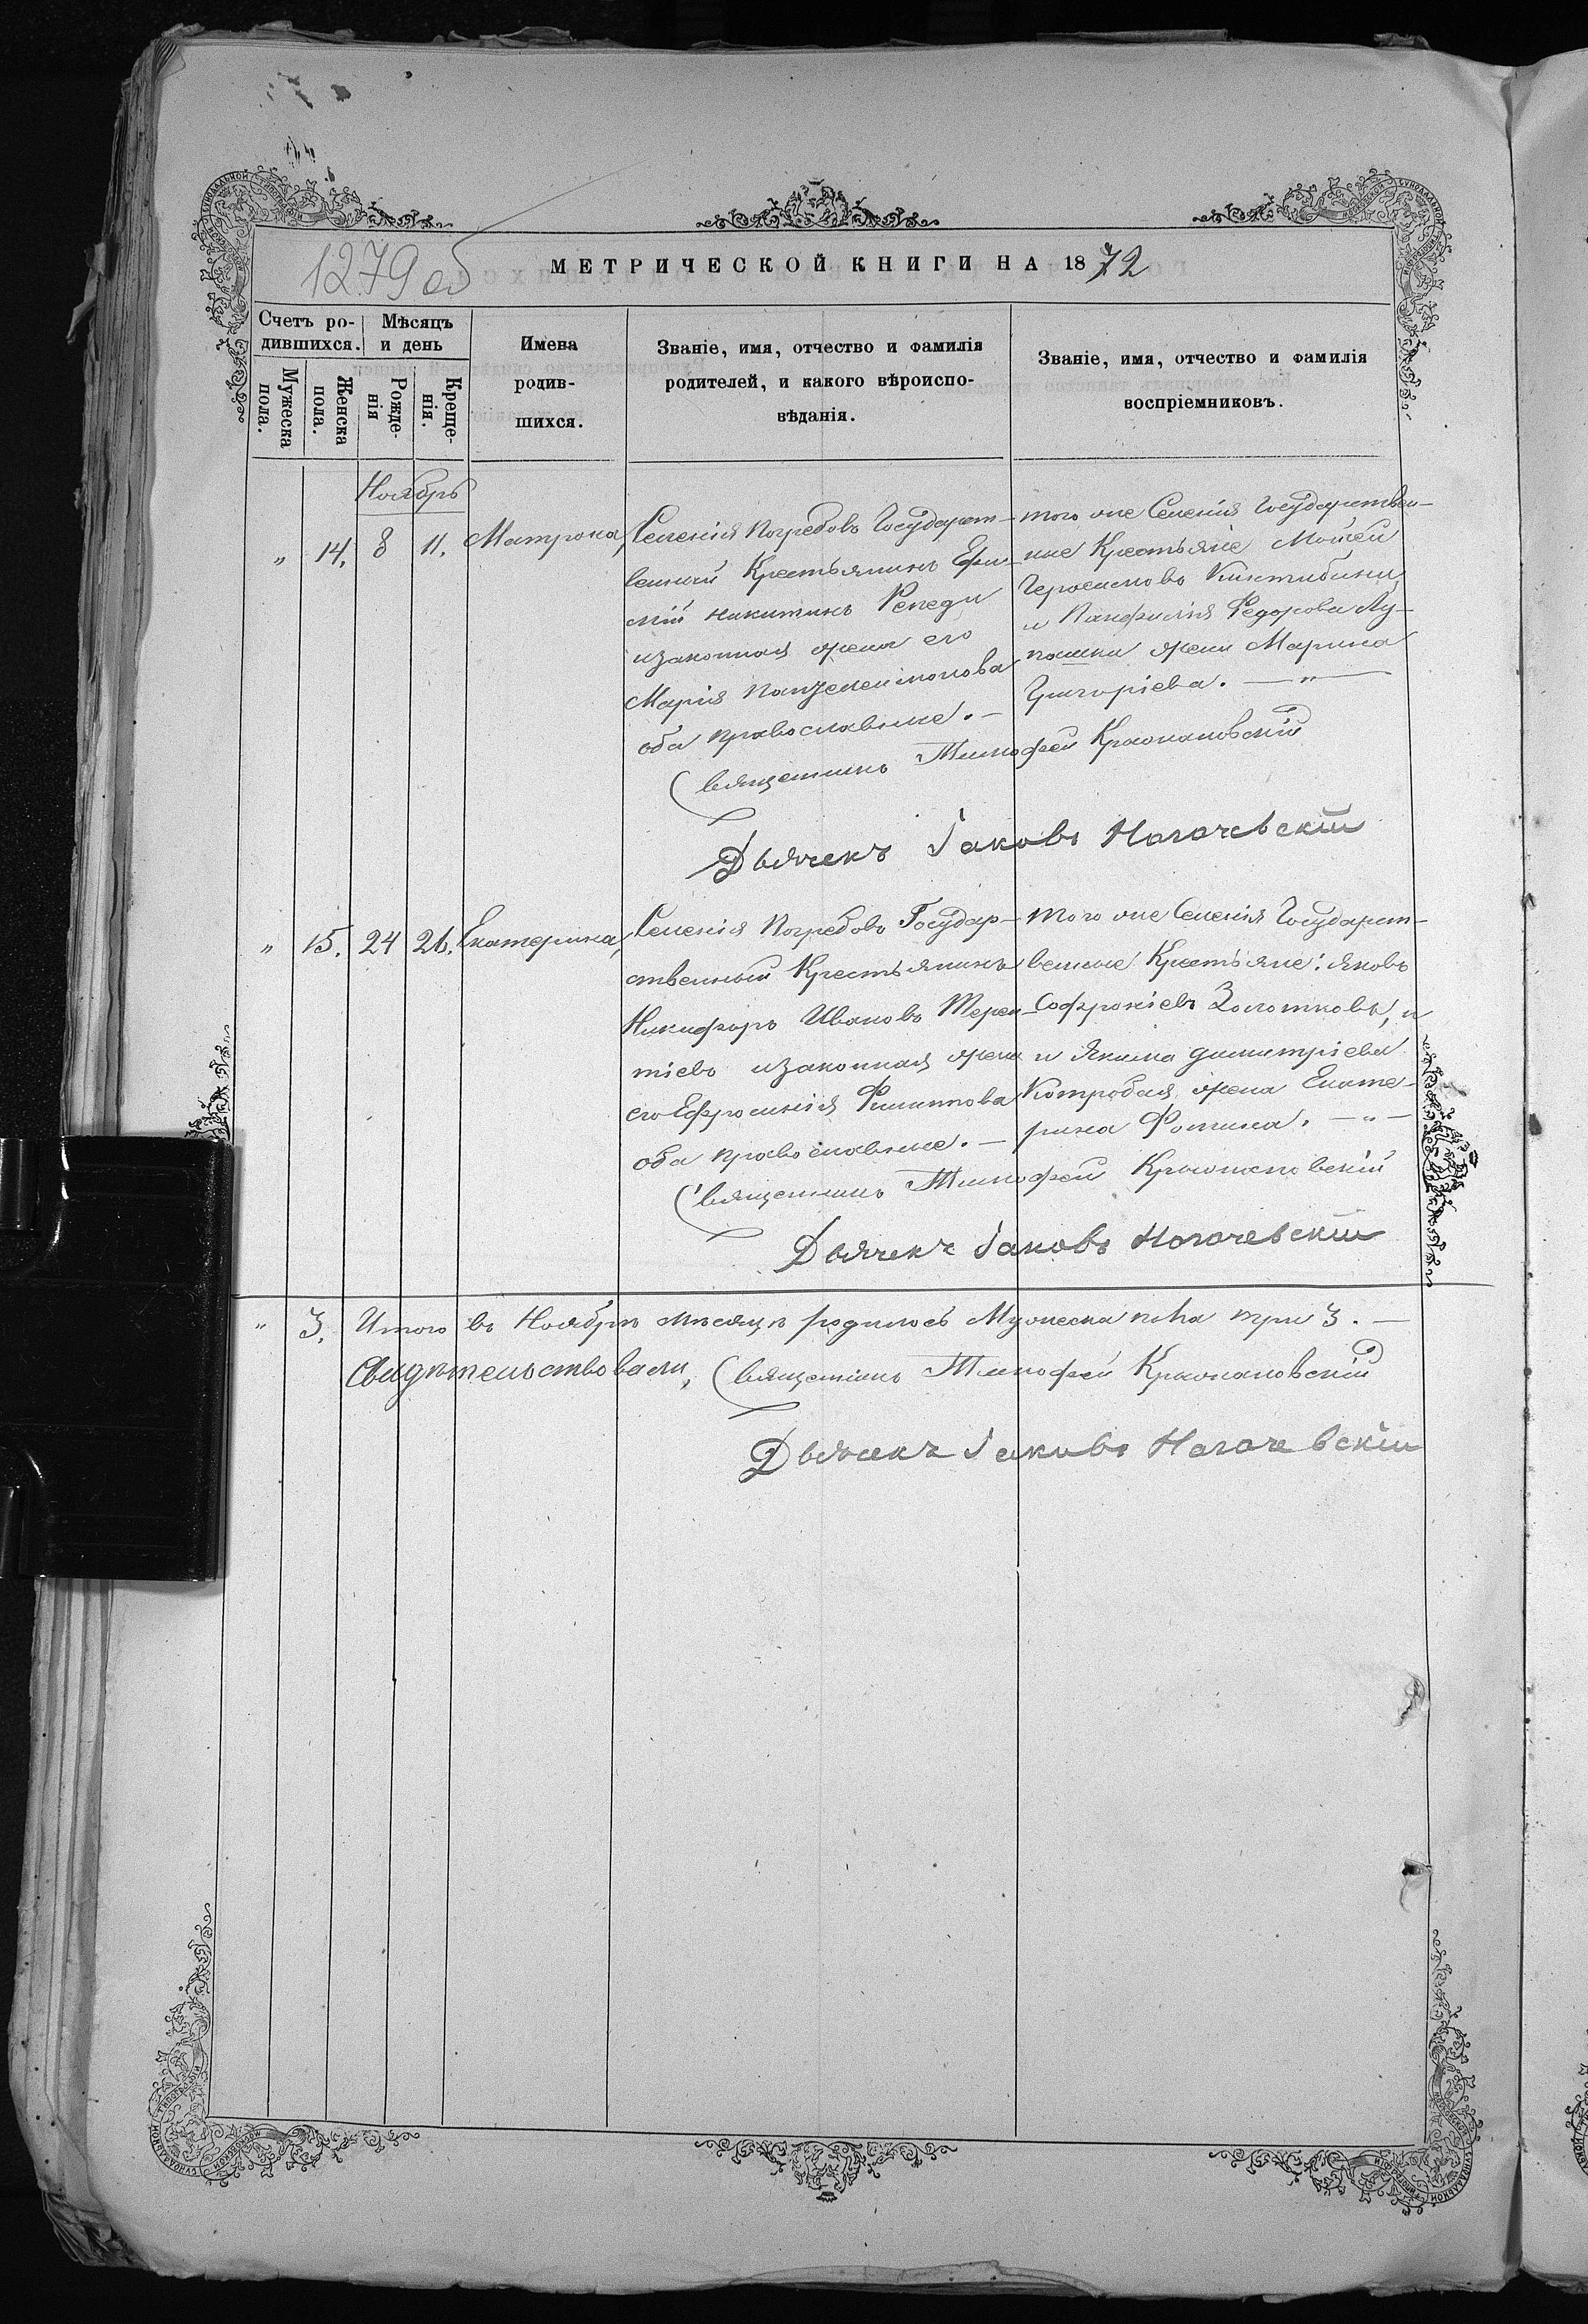 1279 об
МЕТРИЧЕСКОЙ КНИГИ НА 1872
Счетъ ро-
дившихся.
Мѣсяцъ
и день
Мужеска
пола.
Женска
пола.
Рожде-
нія
Креще-
нія.
Имена
родив-
шихся.
Званіе, имя, отчество и фамилія
родителей, и какого вѣроиспо-
вѣданія.
Званіе, имя, отчество и фамилія
воспріемниковъ.
Ноябрь
" 14. 8 11. Матрона,
Селенія Погребовъ Государст-
венный Крестьянинъ
Никитинъ
и законная жена его
Марія Пантелеимонова
оба православные. —
того же Селенія Государствен-
ные Крестьяне Мойсей
и Панфилія Федорова Лу-
пашки жена Марина
Григоріева. — " —
Священникъ Тимофей
Дьячекъ Іаковъ Ногачевскій
" 15. 24 26. Екатерина,
Селенія Погребовъ Государ-
ственный Крестьянинъ
Никифоръ Ивановъ Терен-
тіевъ и законная жена
его Ефросинія Филиппова
оба православные. —
того же Селенія Государст-
венные Крестьяне: Яковъ
Софроніевъ Золотковъ, и
и Якима Димитріева
жена Екате-
рина Фотина. — " —
Священникъ Тимофей
Дьячекъ Іаковъ Ногачевскій
" 3. Итого въ Ноябрѣ мѣсяцѣ родилось Мужеска пола три 3. —
Свидѣтельствовали, Священникъ Тимофей
Дьячекъ Іаковъ Ногачевскій